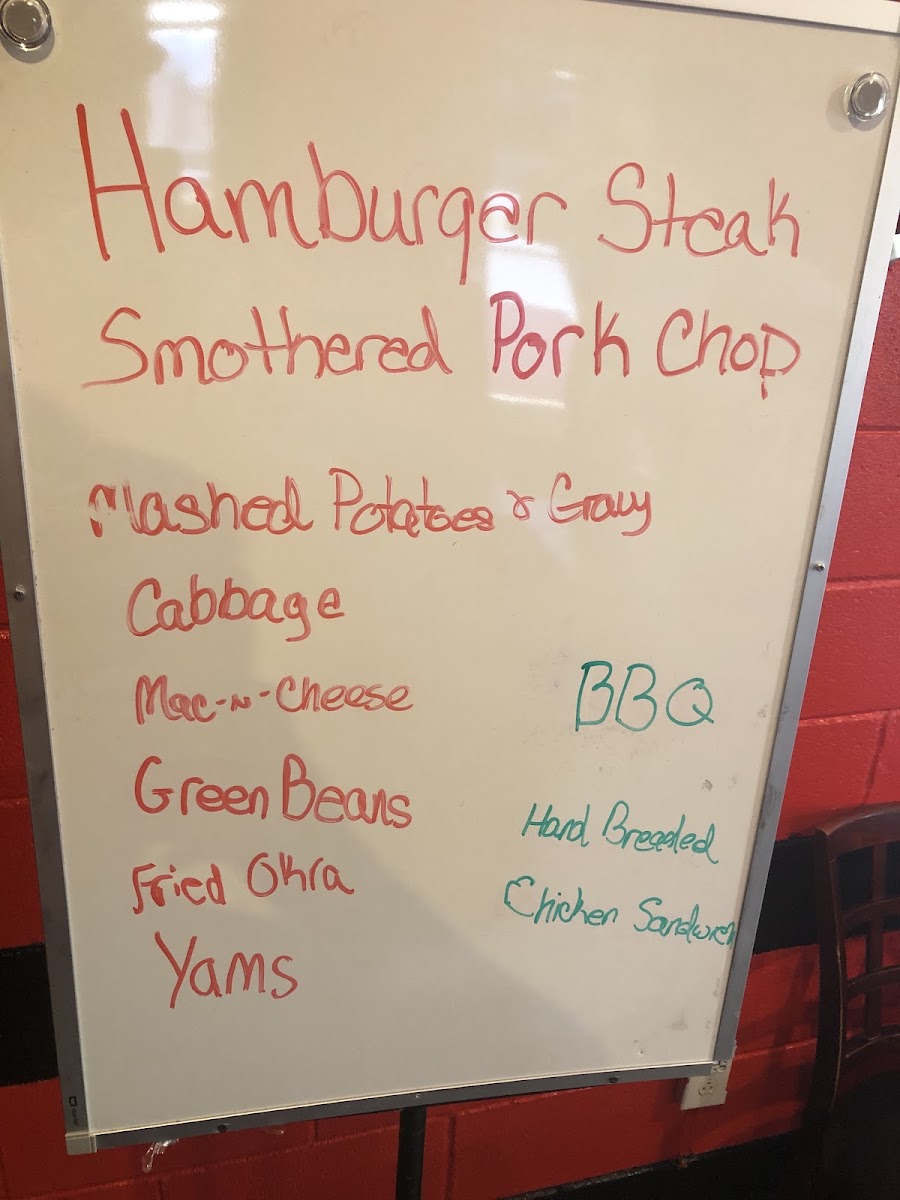 Hamburger Steak
Smothered Pork Chop
Mashed Potatoes & Gravy
Cabbage
Mac-N-Cheese
Green Beans
Fried Okra
Yams
BBQ
Hand Breaded
Chicken Sandwich